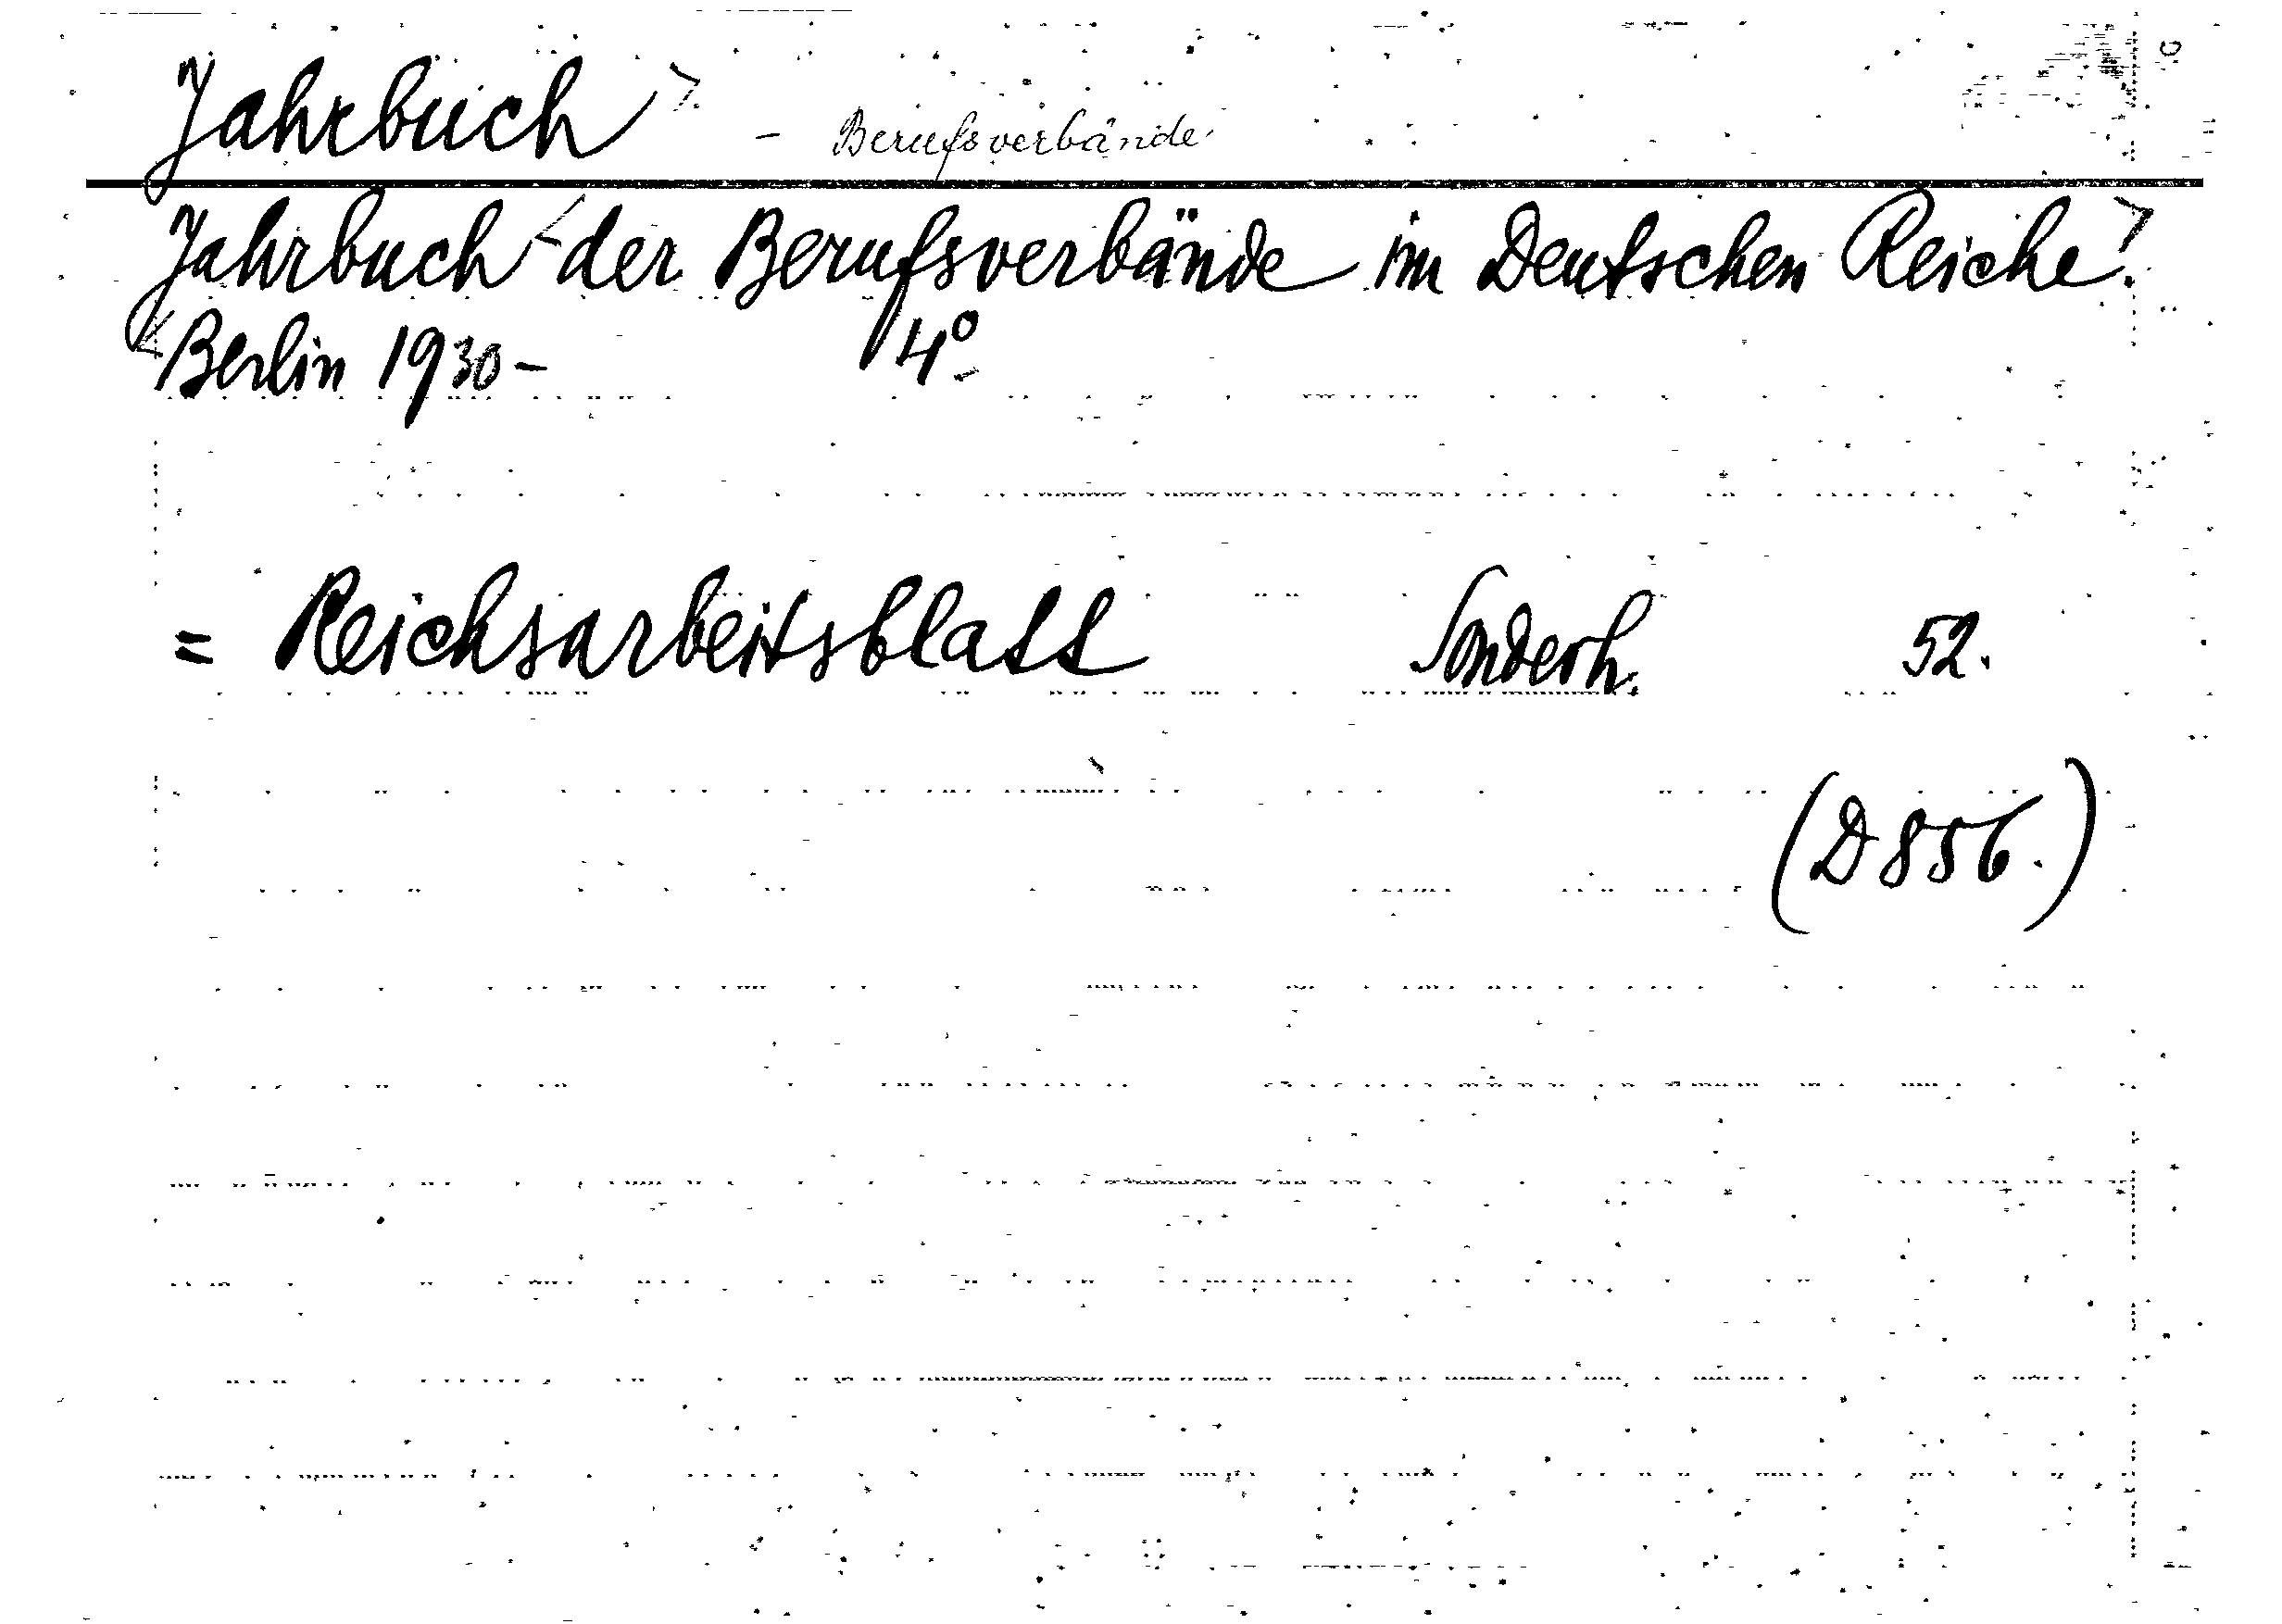 Jahrbuch> - Berufsverbände
Jahrbuch <der Berufsverbände im Deutschen Reiche.>
<Berlin 1930- 4°
= Reichsarbeitsblatt Sonderh. 52.
(D 856.)